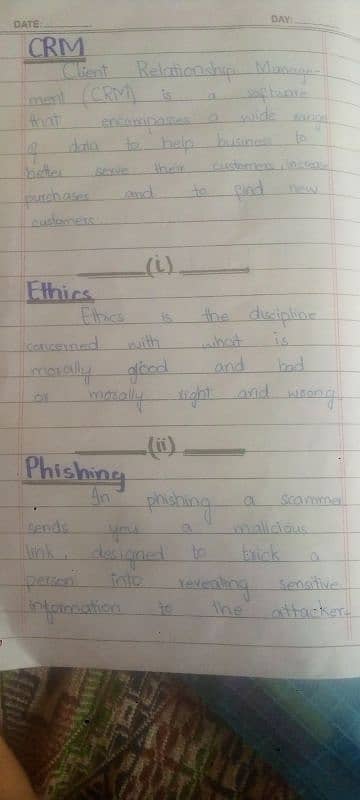 DATE:
DAY:
CRM
Client Relationship Manage-
ment (CRM) is a software
that encompasses a wide range
of data to help business to
better serve their customers, increase
purchases and to find new
customers.
(i)
Ethics
Ethics is the discipline
concerned with what is
morally good and bad
or morally right and wrong.
(ii)
Phishing
In phishing a scammer
sends you a malicious
link, designed to trick a
person into revealing sensitive
information to the attacker.